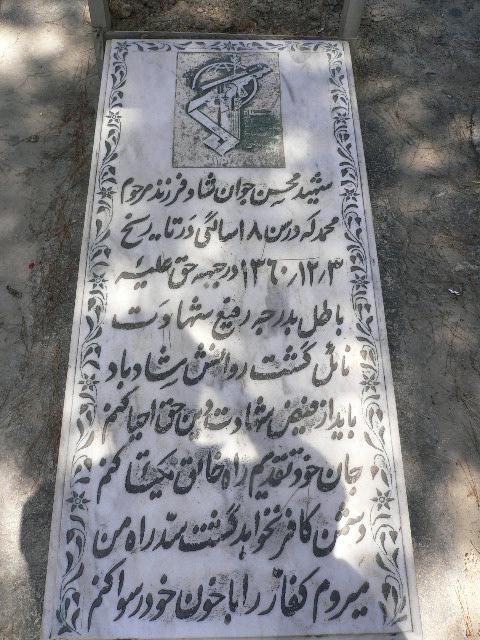 شهید محسن جوان شاد فرزند مرحوم
محمد که در سن ۱۸ سالگی در تاریخ
۱۳۶۰/۱۲/۳ در جبهه حق علیه
باطل بدرجه رفیع شهادت
نائل گشت روانش شاد باد
باید از فیض شهادت دین حق احیا کنم
جان خود تقدیم راه خالق یکتا کنم
دشمن کافر نخواهد گشت سد راه من
میروم کفار را با خون خود رسوا کنم